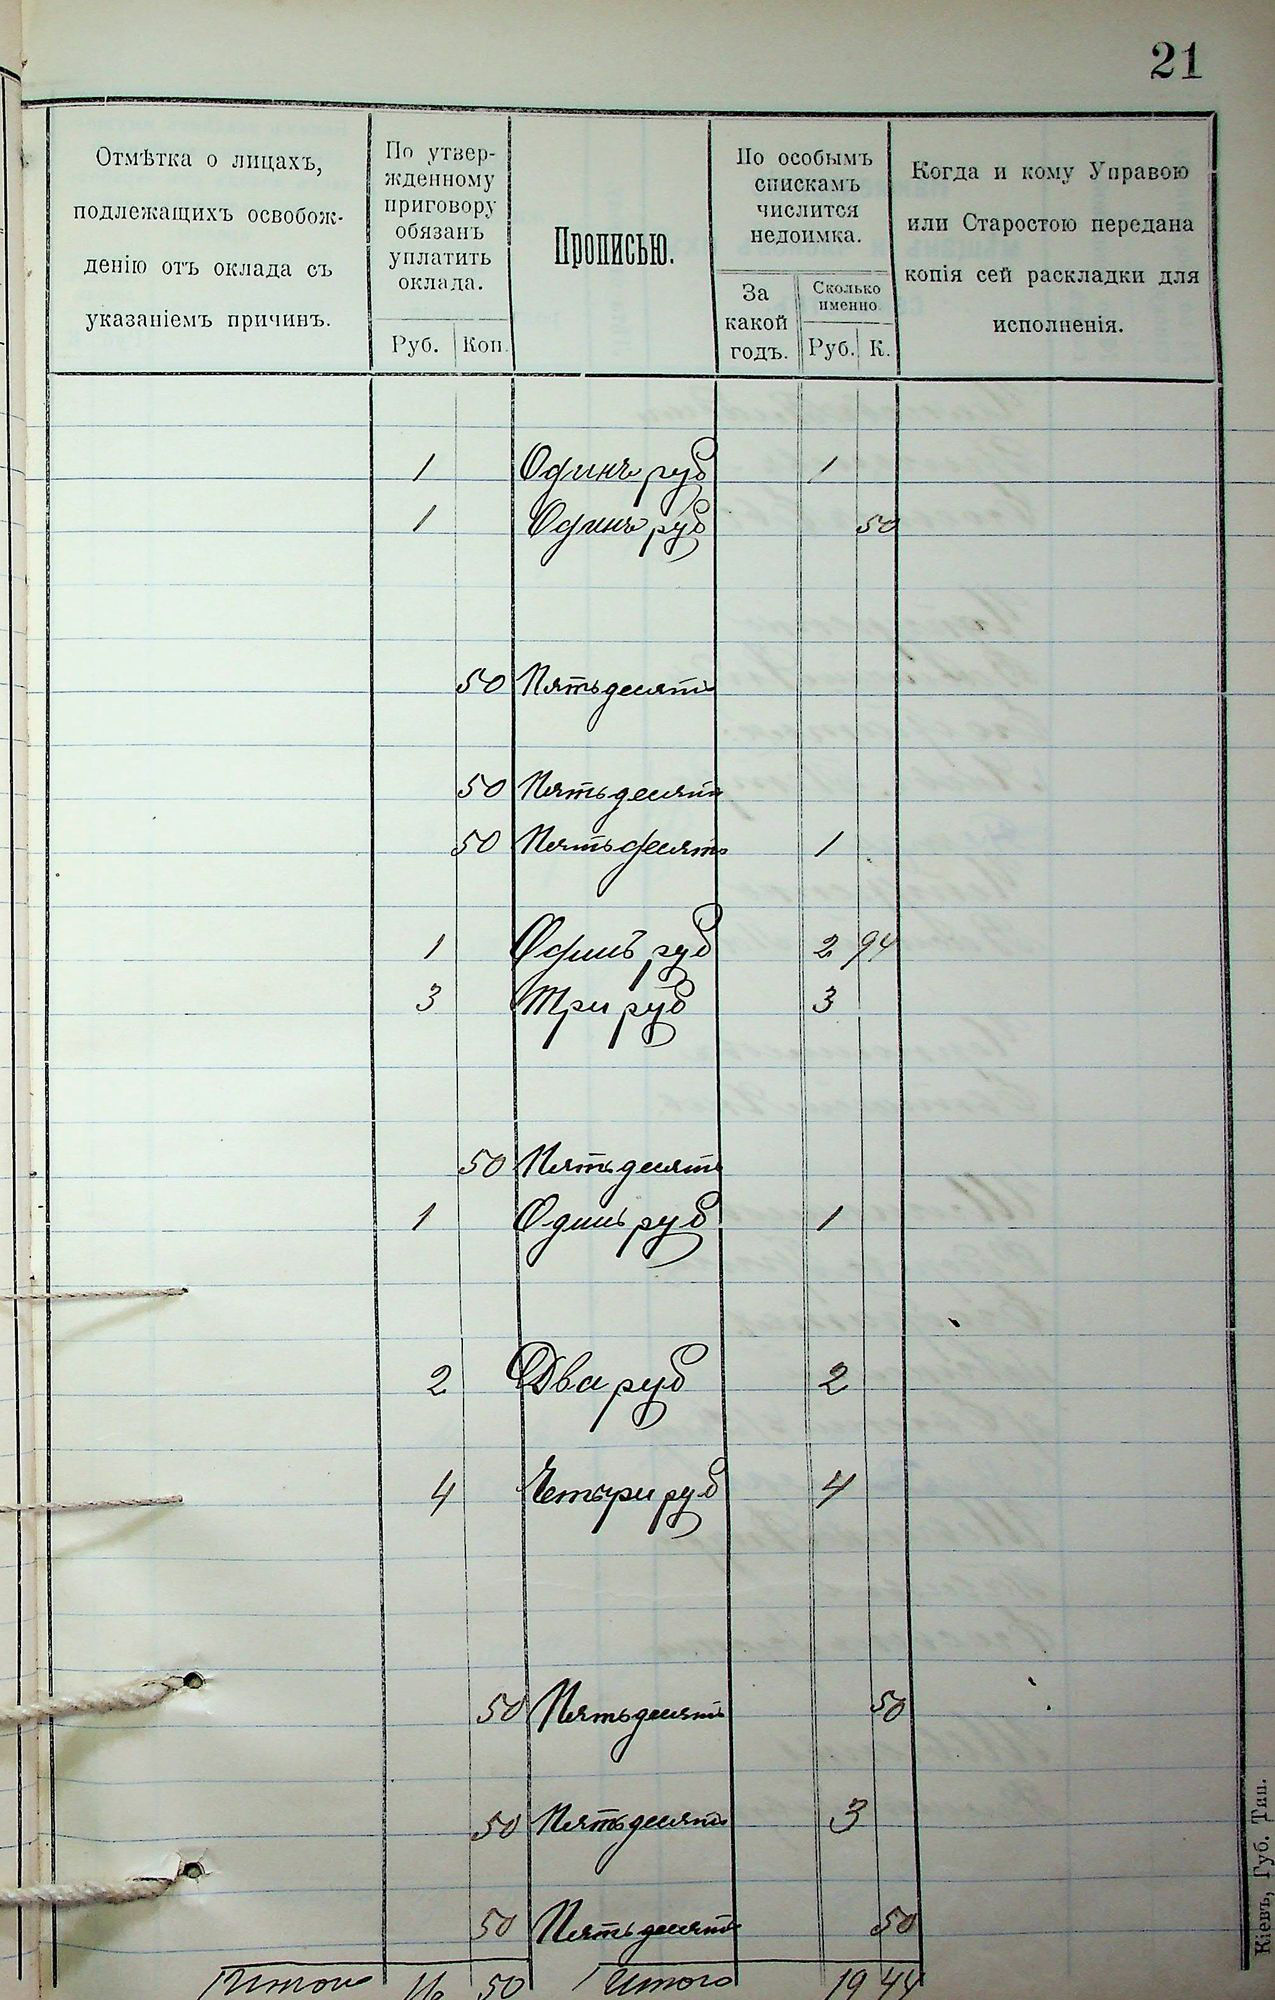 21
Отмѣтка о лицахъ,
подлежащихъ освобож-
денію отъ оклада съ
указаніемъ причинъ.
По утвер-
жденному
приговору
обязанъ
уплатить
оклада.
Руб. Коп.
Прописью.
По особымъ
спискамъ
числится
недоимка.
За
какой
годъ.
Сколько
именно.
Руб. К.
Когда и кому Управою
или Старостою передана
копія сей раскладки для
исполненія.
1 Одинъ руб 1
1 Одинъ руб 50
50 Пятьдесятъ
50 Пятьдесятъ
50 Пятьдесятъ 1
1 Одинъ руб 2 94
3 Три руб 3
50 Пятьдесятъ
1 Одинъ руб 1
2 Два руб 2
4 Четыри руб 4
50 Пятьдесятъ 50
50 Пятьдесятъ 3
50 Пятьдесятъ 50
Итого 16 50 Итого 19 44
Кіевъ, Губ. Тип.